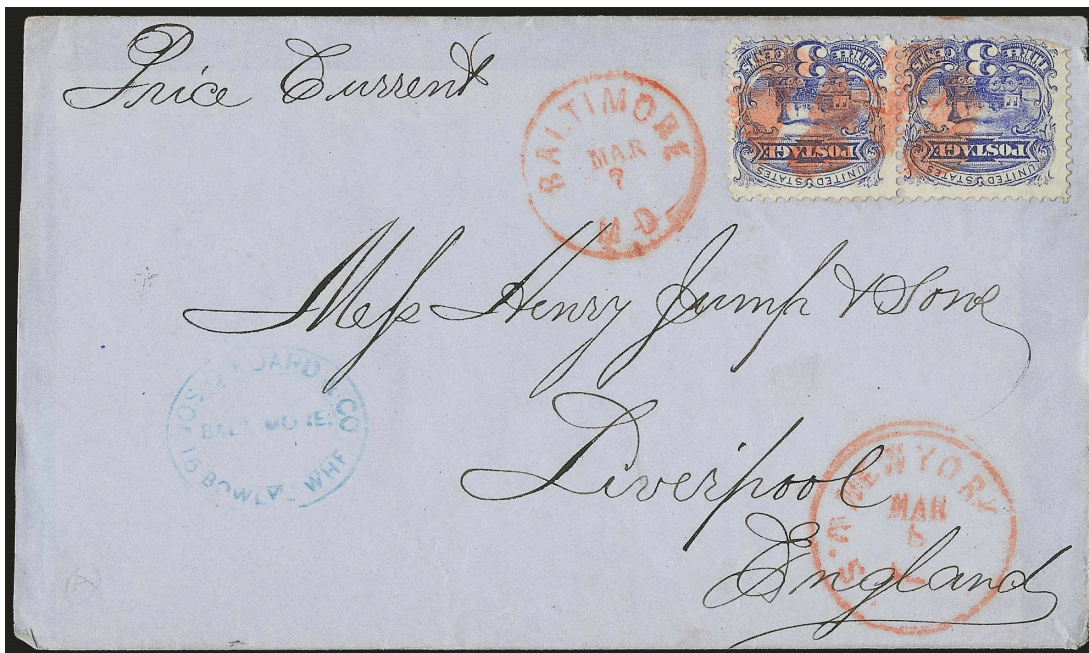 Price Current
BALTIMORE
MAR
7
MD
3
THREE CENTS
POSTAGE
UNITED STATES
3
THREE CENTS
POSTAGE
UNITED STATES
Mess Henry Jump & Sons
Liverpool
England
JOS. & CO
16 BOWLY'S WHF
NEW YORK
MAR